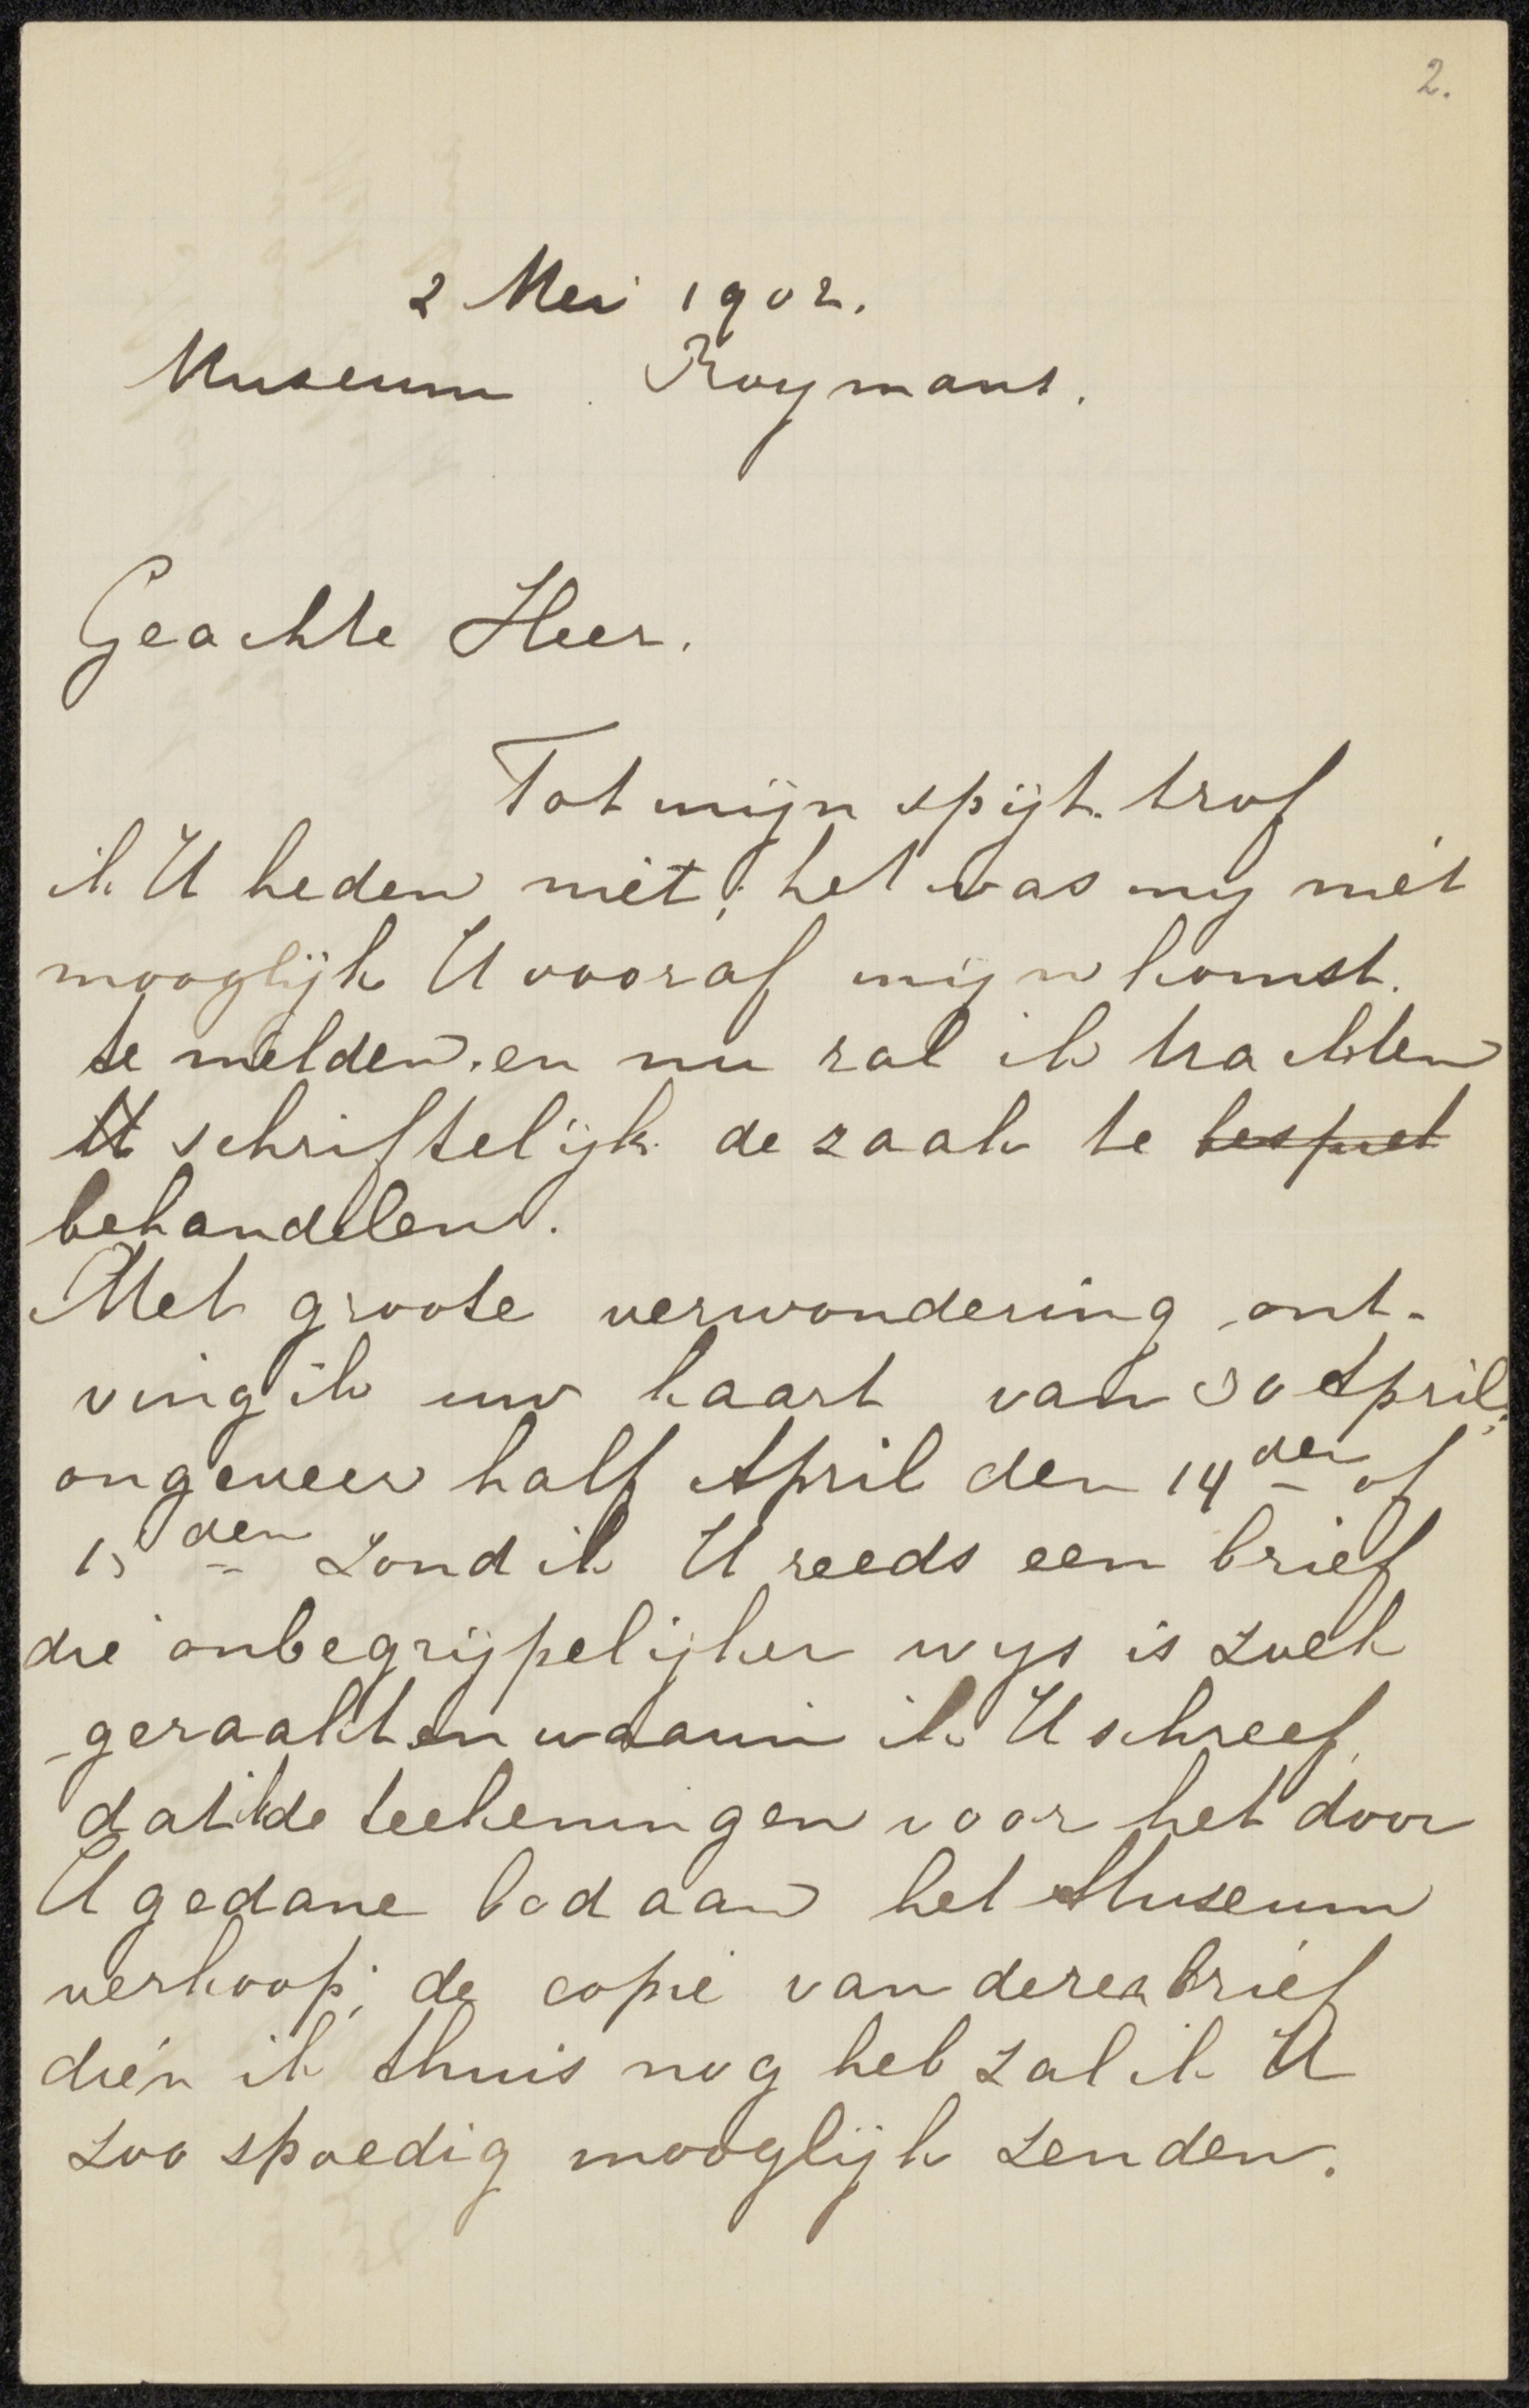 2.
2 Mei 1902.
Museum Boymans.
Geachte Heer.
Tot mijn spijt trof
ik U heden niet; het was mij niet
mooglijk U vooraf mijn komst
te melden. en nu zal ik trachten
U schriftelijk de zaak te bespret
behandelen.
Met groote verwondering ont-
ving ik uw kaart van 30 April;
ongeveer half April den 14den of
15den zond ik U reeds een brief
die onbegrijpelijker wijs is zoek
geraakt en waarin ik U schreef
dat ik de teekeningen voor het door
U gedane bod aan het Museum
verkoop; de copie van dezen brief
dien ik thuis nog heb zal ik U
zoo spoedig mooglijk zenden.